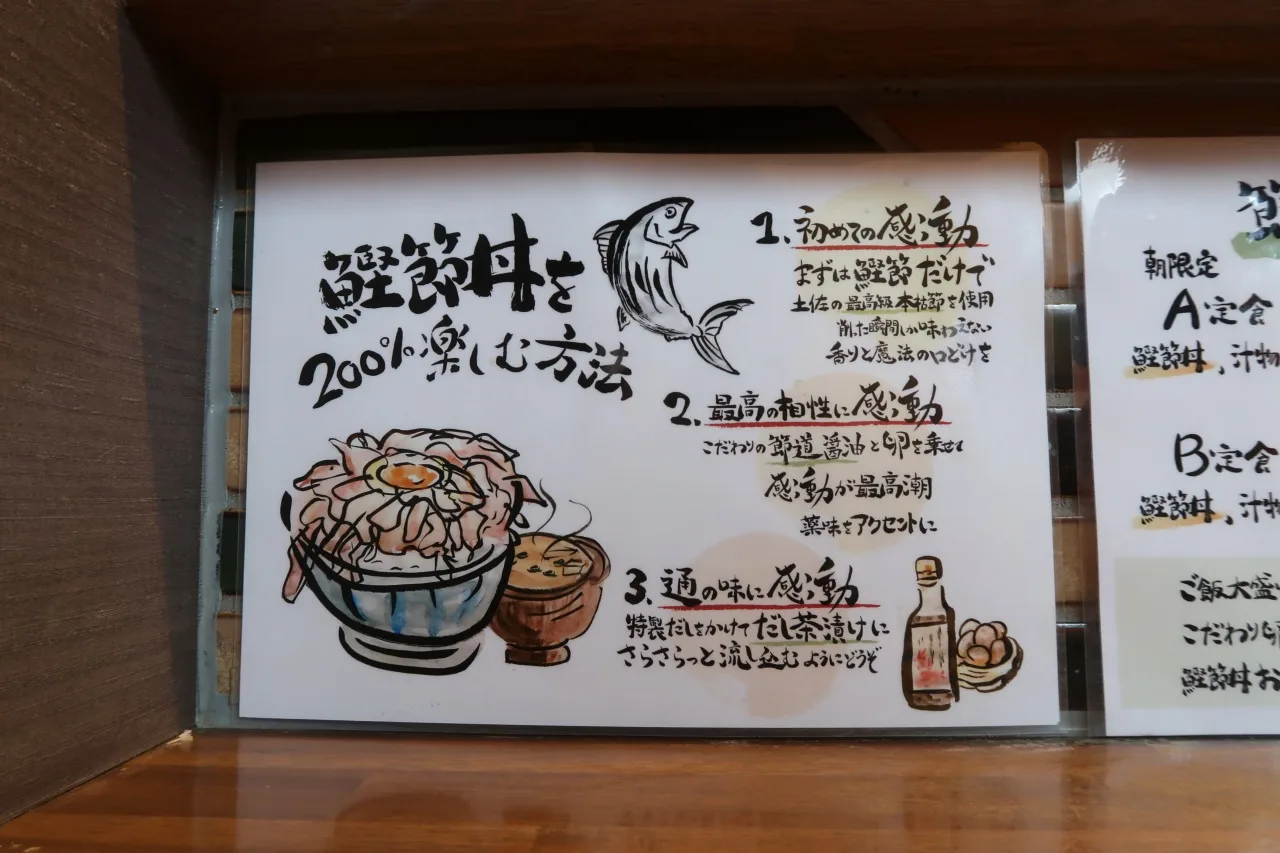 鰹節丼を
200%楽しむ方法
1. 初めての感動
まずは鰹節だけで
土佐の最高級本枯節を使用
削した瞬間しか味わえない
香りと魔法の口どけを
2. 最高の相性に感動
こだわりの節道醤油と卵を乗せて
感動が最高潮
薬味をアクセントに
3. 通の味に感動
特製だしをかけてだし茶漬けに
さらさらっと流し込むようにどうぞ
朝限定
A定食
鰹節丼、汁物
B定食
鰹節丼、汁物
ご飯大盛
こだわり卵
鰹節丼お